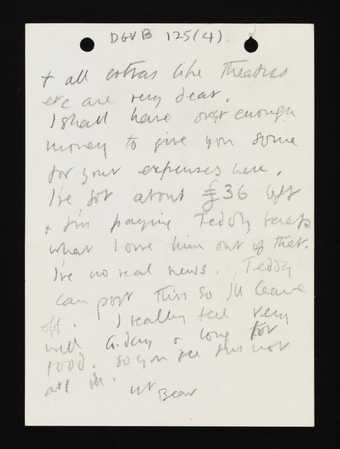 DGVB 125(4)
+ all extras like Theatres
etc are very dear.
I shall have over enough
money to give you some
for your expenses here.
I've got about £36 left
+ I'm paying Teddy back
what I owe him out of that.
I've no real news. Teddy
can post this so I'll leave
off. I really feel very
well to-day + long for
food. So you see I'm not
at all ill.
Bear